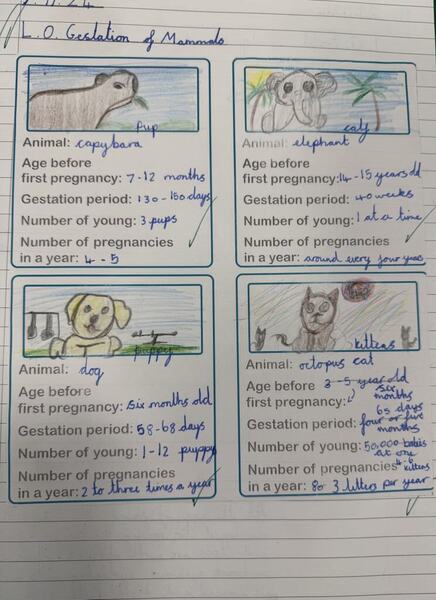 L.O. Gestation of Mammals
pup
Animal: capybara
Age before
first pregnancy: 7-12 months
Gestation period: 130-150 days
Number of young: 3 pups
Number of pregnancies
in a year: 4-5
calf
Animal: elephant
Age before
first pregnancy: 14-15 years old
Gestation period: 40 weeks
Number of young: 1 at a time
Number of pregnancies
in a year: around every four years
puppy
Animal: dog
Age before
first pregnancy: six months old
Gestation period: 58-68 days
Number of young: 1-12 puppy
Number of pregnancies
in a year: 2 to three times a year
kittens
Animal: octopus cat
Age before 3-5 year old
first pregnancy: six months
65 days
Gestation period: four or five months
Number of young: 50,000 babies at one
4-6 kittens
Number of pregnancies
in a year: 80 3 litters per year